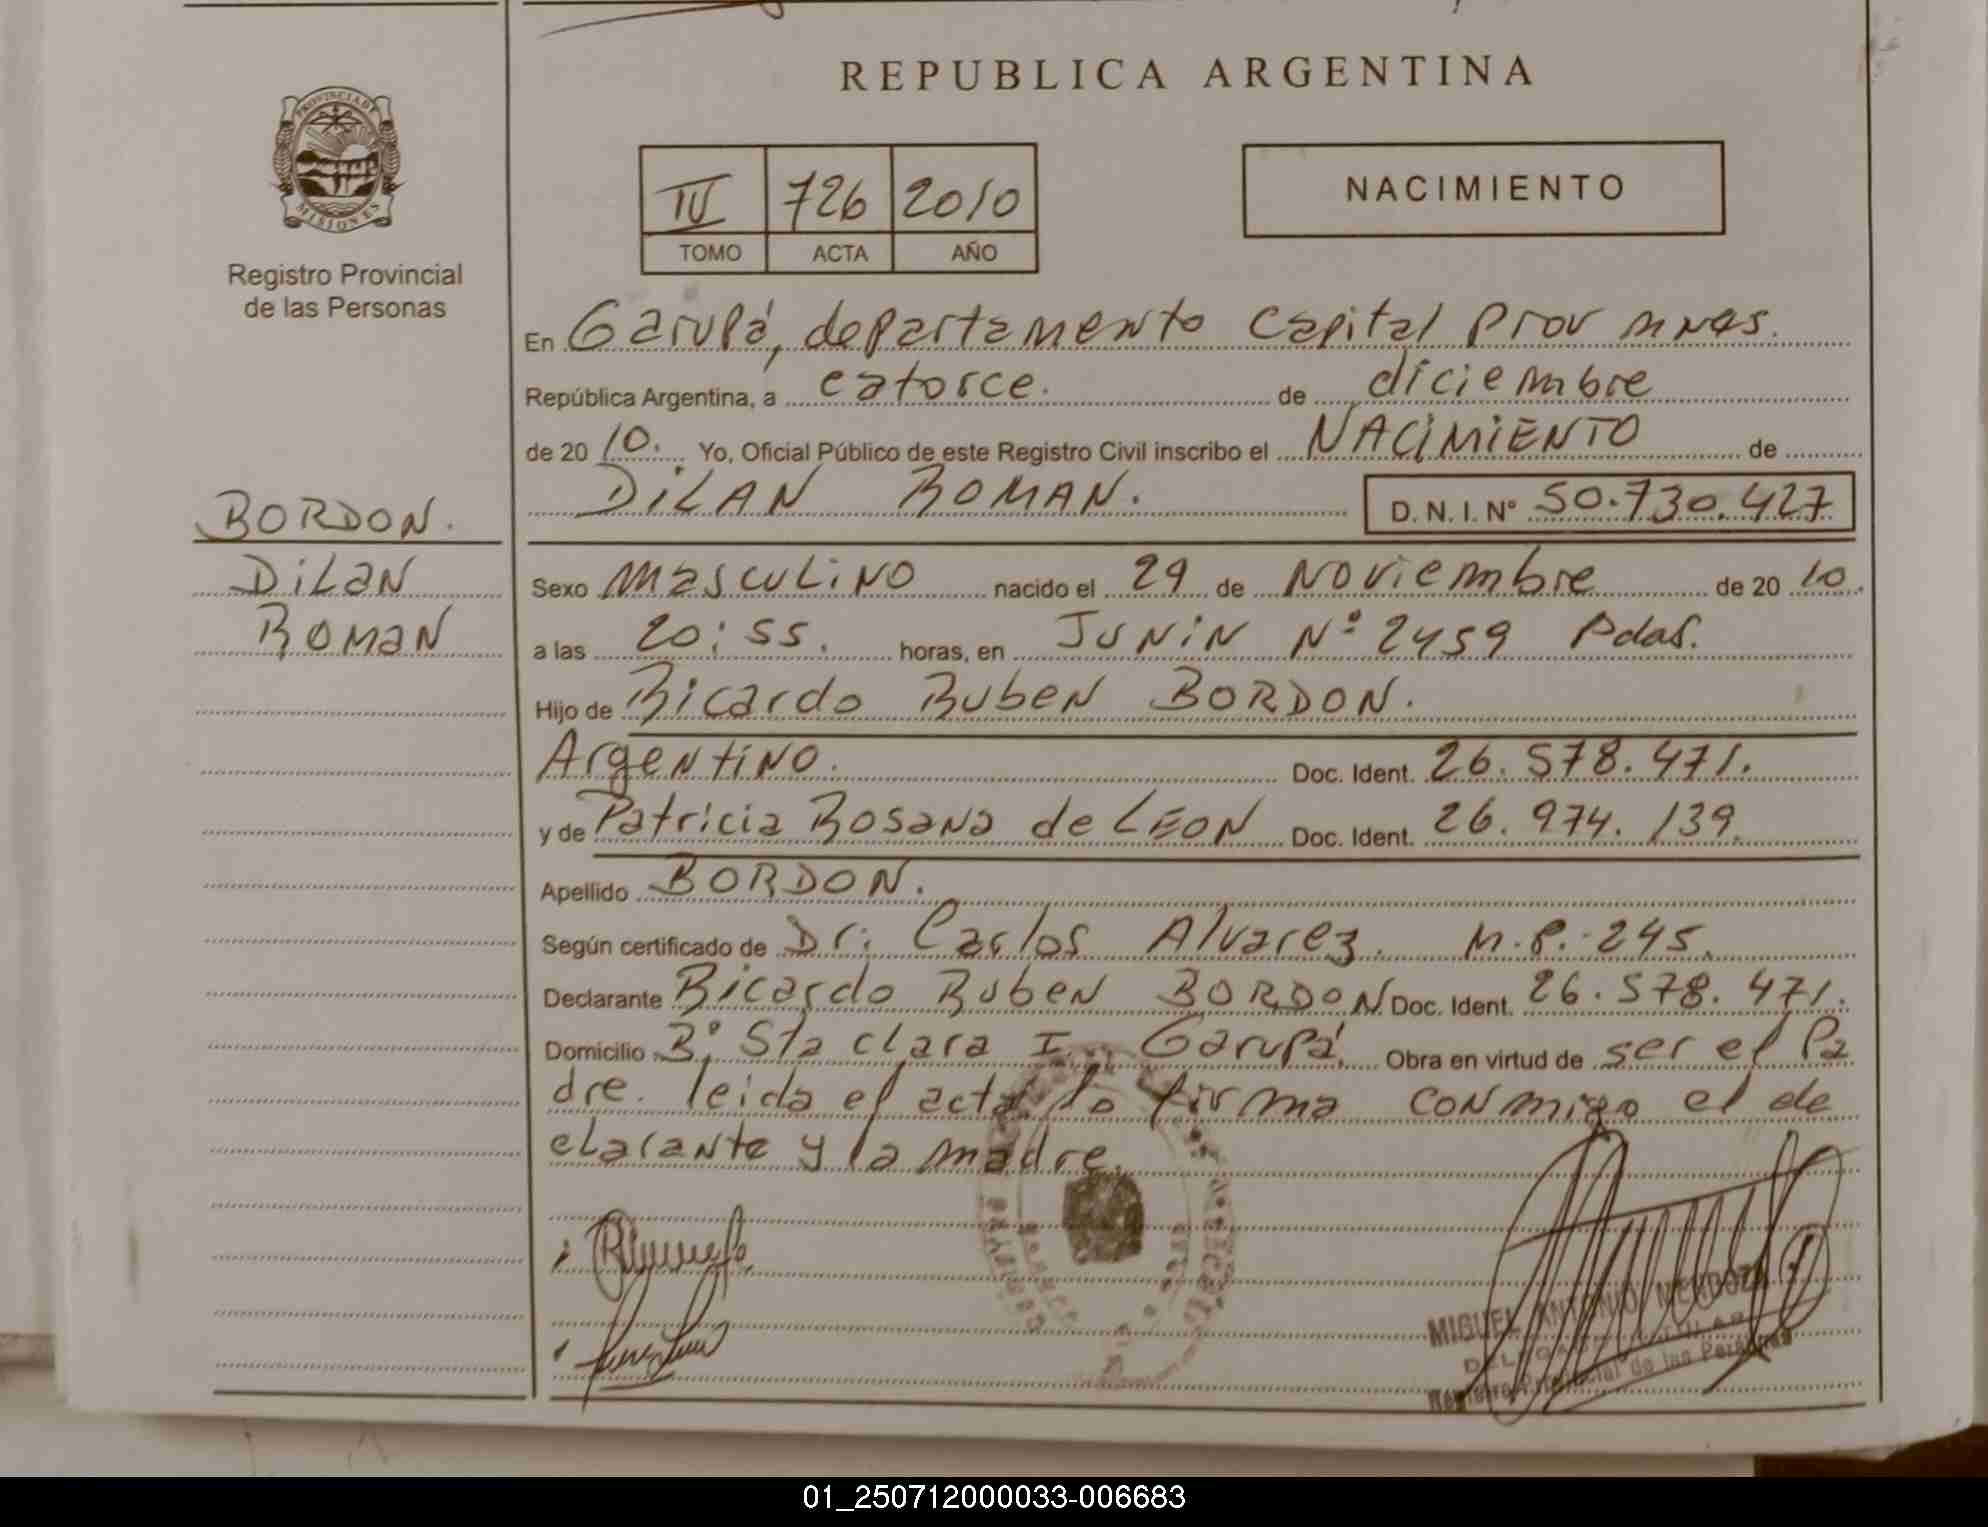 REPUBLICA ARGENTINA
PROVINCIA DE
MISIONES
Registro Provincial
de las Personas
IV 726 2010
TOMO ACTA AÑO
NACIMIENTO
En Garupá, departamento Capital Prov mnes.
República Argentina, a catorce. de diciembre
de 20 10. Yo, Oficial Público de este Registro Civil inscribo el NACIMIENTO de
DiLAN ROMAN. D. N. I. Nº 50.730.427
BORDON.
DiLaN
ROMaN
Sexo masculino nacido el 29 de Noviembre de 20 10.
a las 20:55. horas, en JUNiN Nº 2459 Pdas.
Hijo de Ricardo Ruben BORDON.
Argentino. Doc. Ident. 26.578.471.
y de Patricia Rosana de LEON Doc. Ident. 26.974.139.
Apellido BORDON.
Según certificado de Dr. Carlos Alvarez. M.P. 245.
Declarante Ricardo Ruben BORDON Doc. Ident. 26.578.471.
Domicilio Bº Sta clara I. Garupá. Obra en virtud de ser el Pa
dre. leida el acta la firma conmigo el de
clarante y la madre.
MIGUEL ANTONIO MENDOZA
DELEGADO TITULAR
Registro Provincial de las Personas
01_250712000033-006683